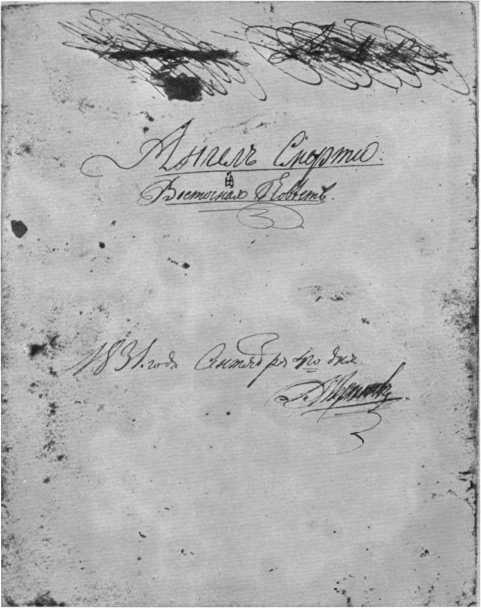 Ангелъ Смерти.
Восточная Повѣсть
1831. года Сентября 4го дня.